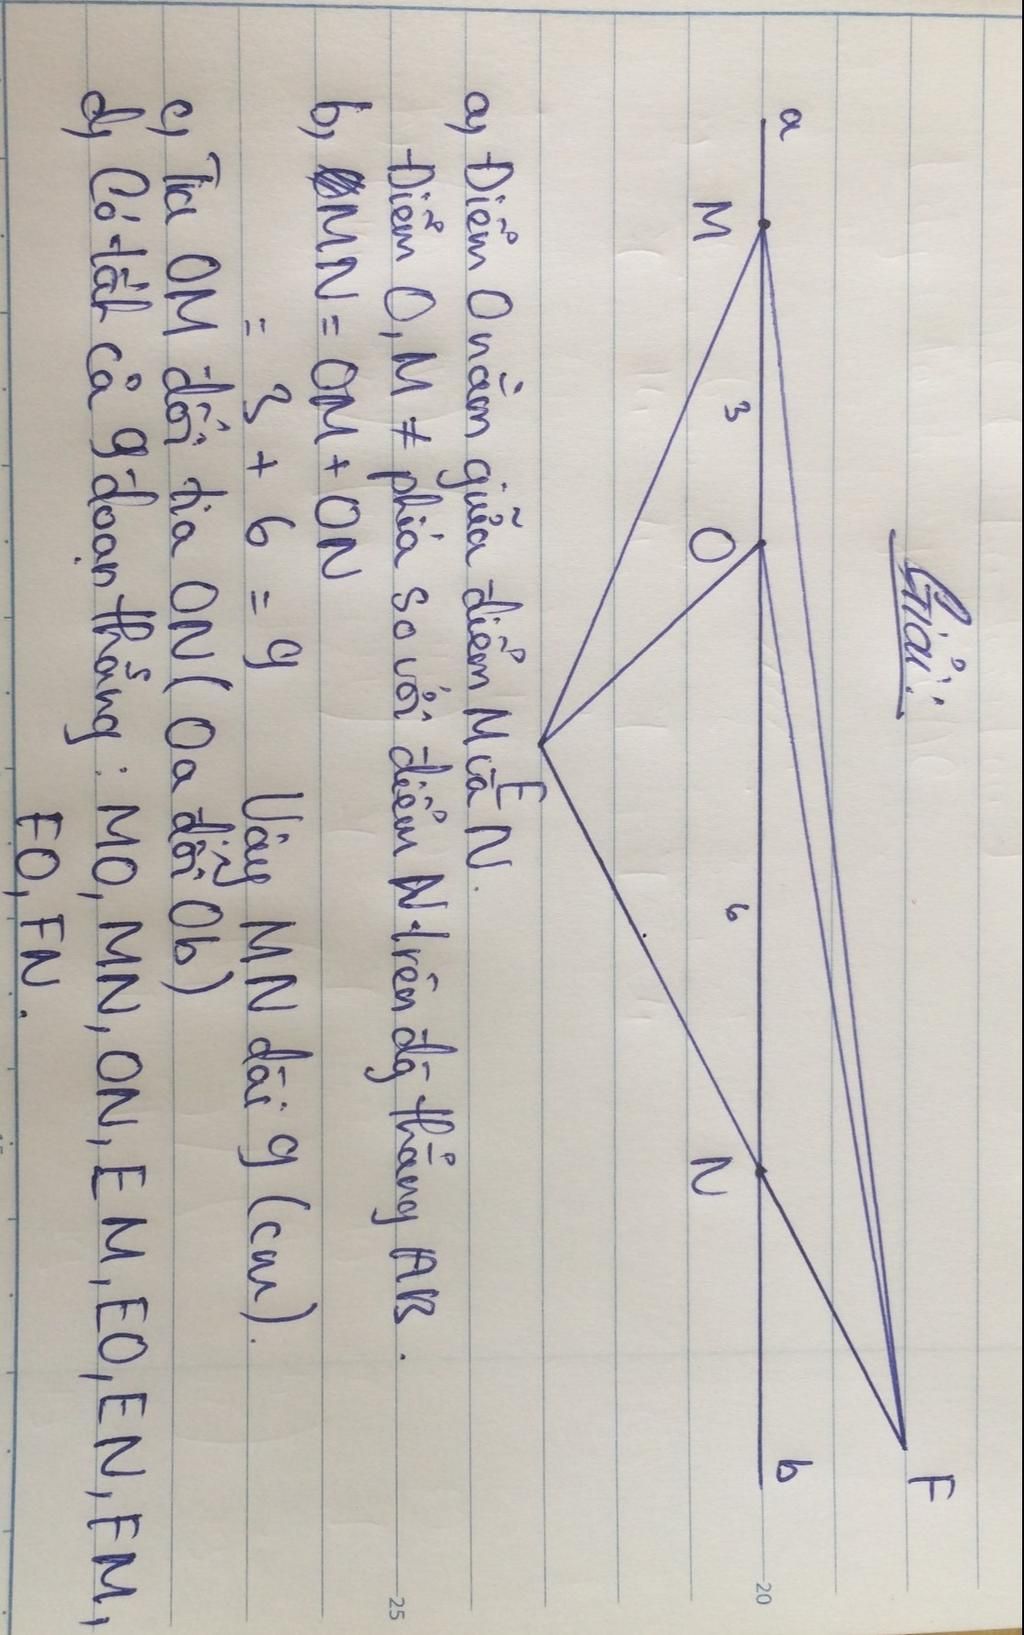 Giải:
F
a b
3 6
M O N
E
a, Điểm O nằm giữa điểm M và N.
Điểm O, M ≠ phía so với điểm N trên đg thẳng AB.
b, MN = OM + ON
= 3 + 6 = 9 Vậy MN dài 9 (cm).
c, Tia OM đối tia ON (Oa đối Ob)
d, Có tất cả 9 đoạn thẳng: MO, MN, ON, EM, EO, EN, FM,
FO, FN.
20
25